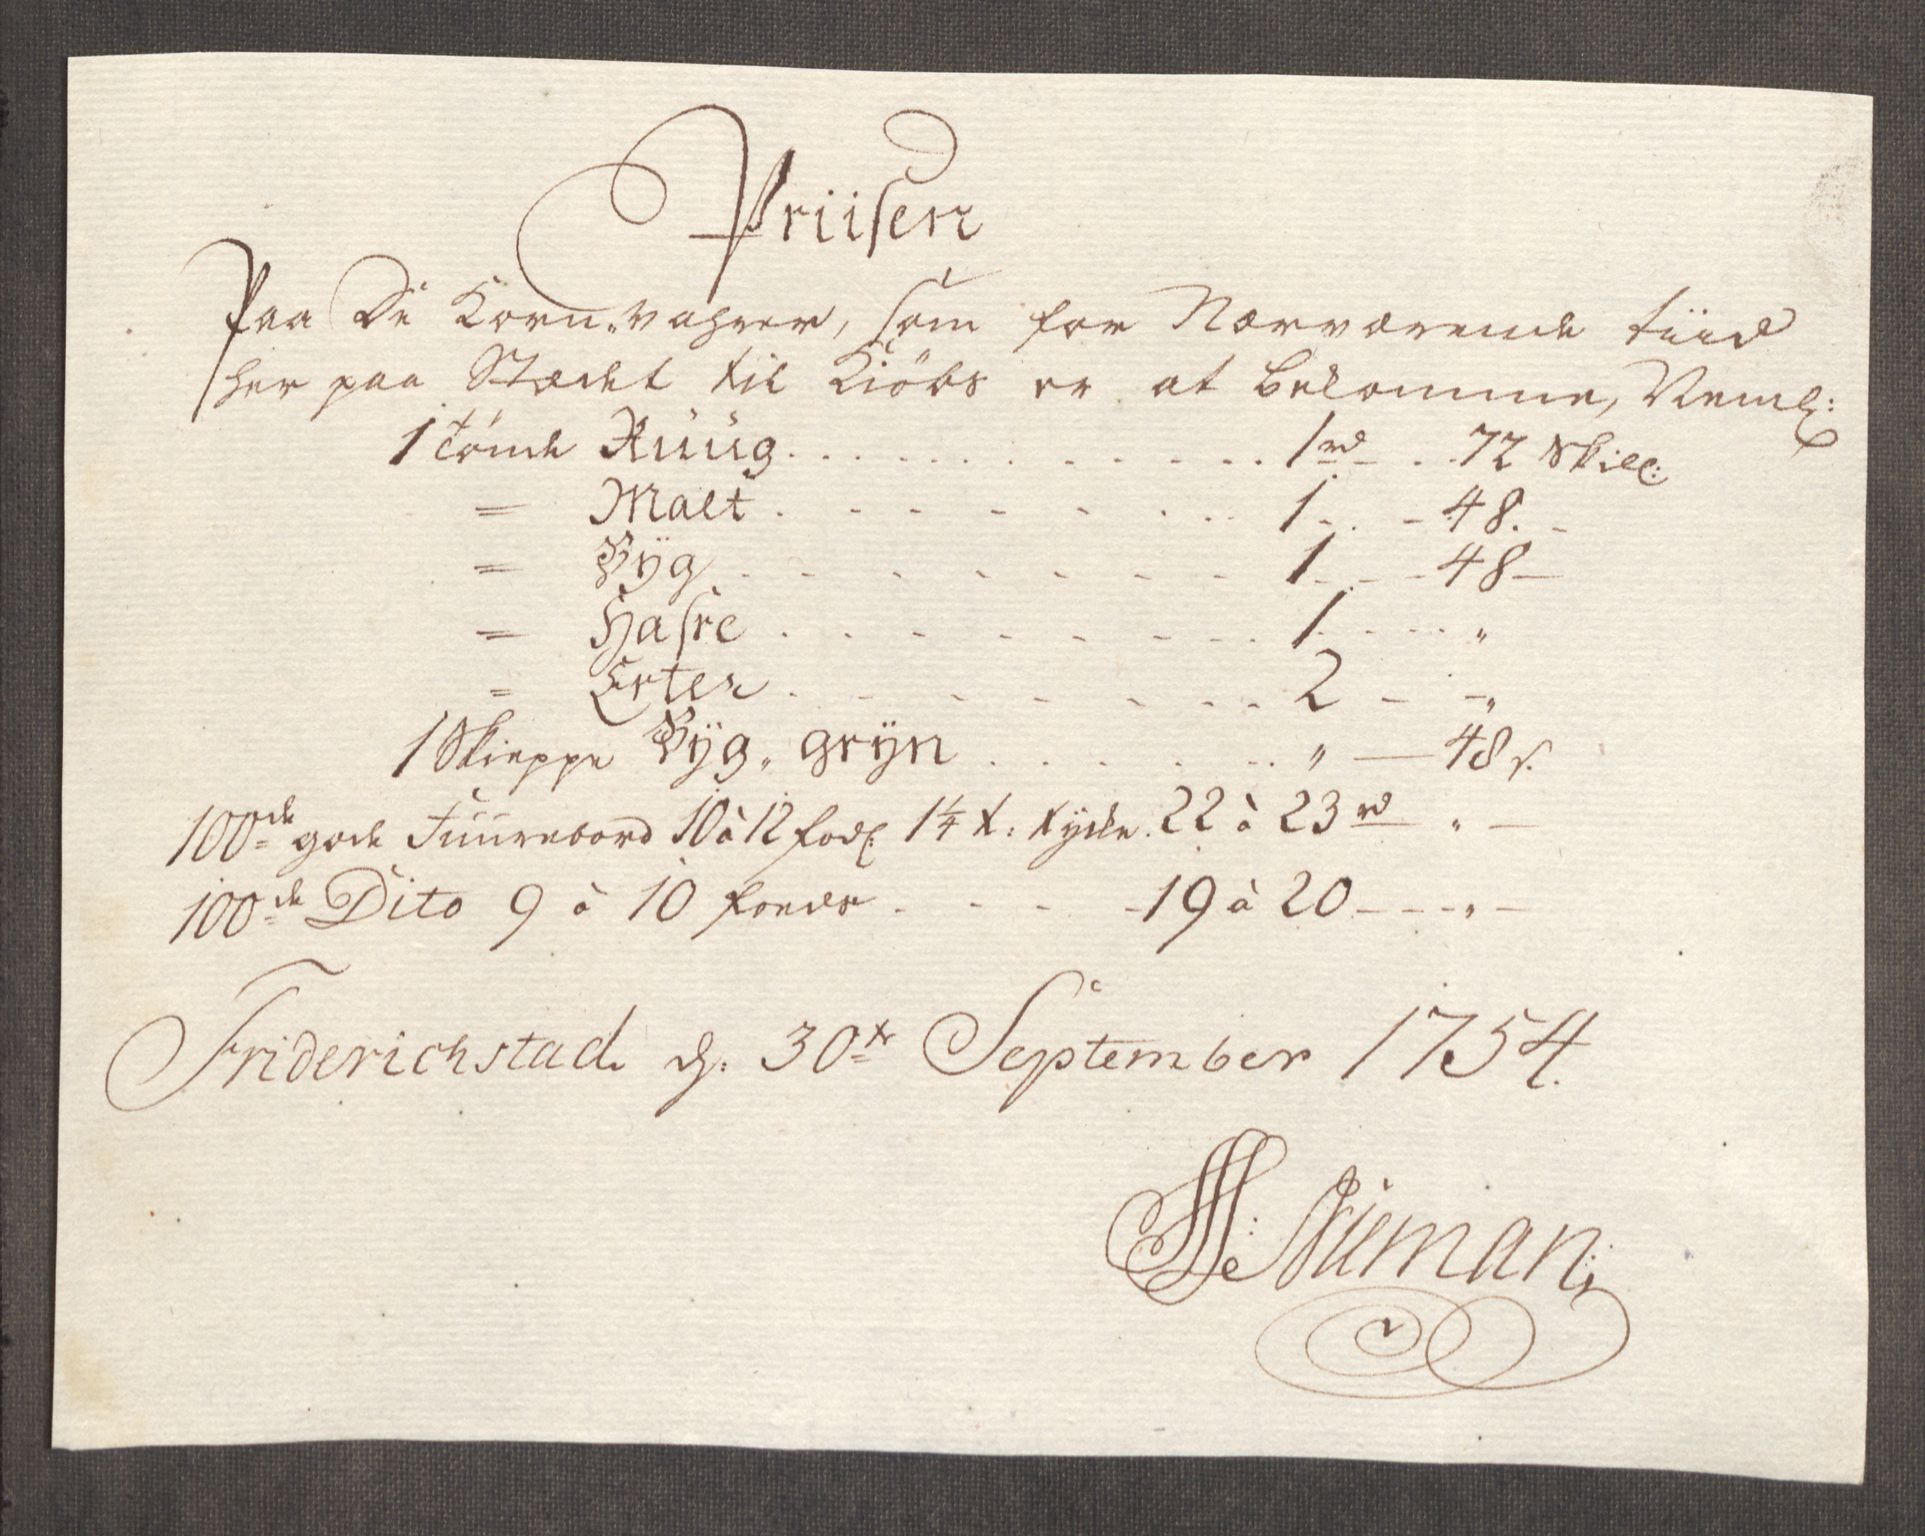 Priisen
Paa De Korn-vahrer, som for Nærværende tiid
her paa Stædet til Kiöbs er at bekomme, Neml:
1 tönde Rüüg . . . . . . . . . . 1 rd - . . 72 Skill:
= Malt . - - - - - - . . . 1 - . - 48. -
= Byg . - - - - - - - 1 - - - 48 -
= Hafre . . - . - - - - - . 1 . - . . . "
= Erter . - - - - - . . 2 - - "
1 Skieppe Byg, gryn . . . . - . . " - 48 s.
100de gode Fuurebord 10 à 12 fod 1 1/4 t: tyke. 22 à 23 rd " -
100de Dito 9 à 10 foeds . - - - - 19 à 20 - - - " -
Friderichstad d: 30te September 1754.
Niman